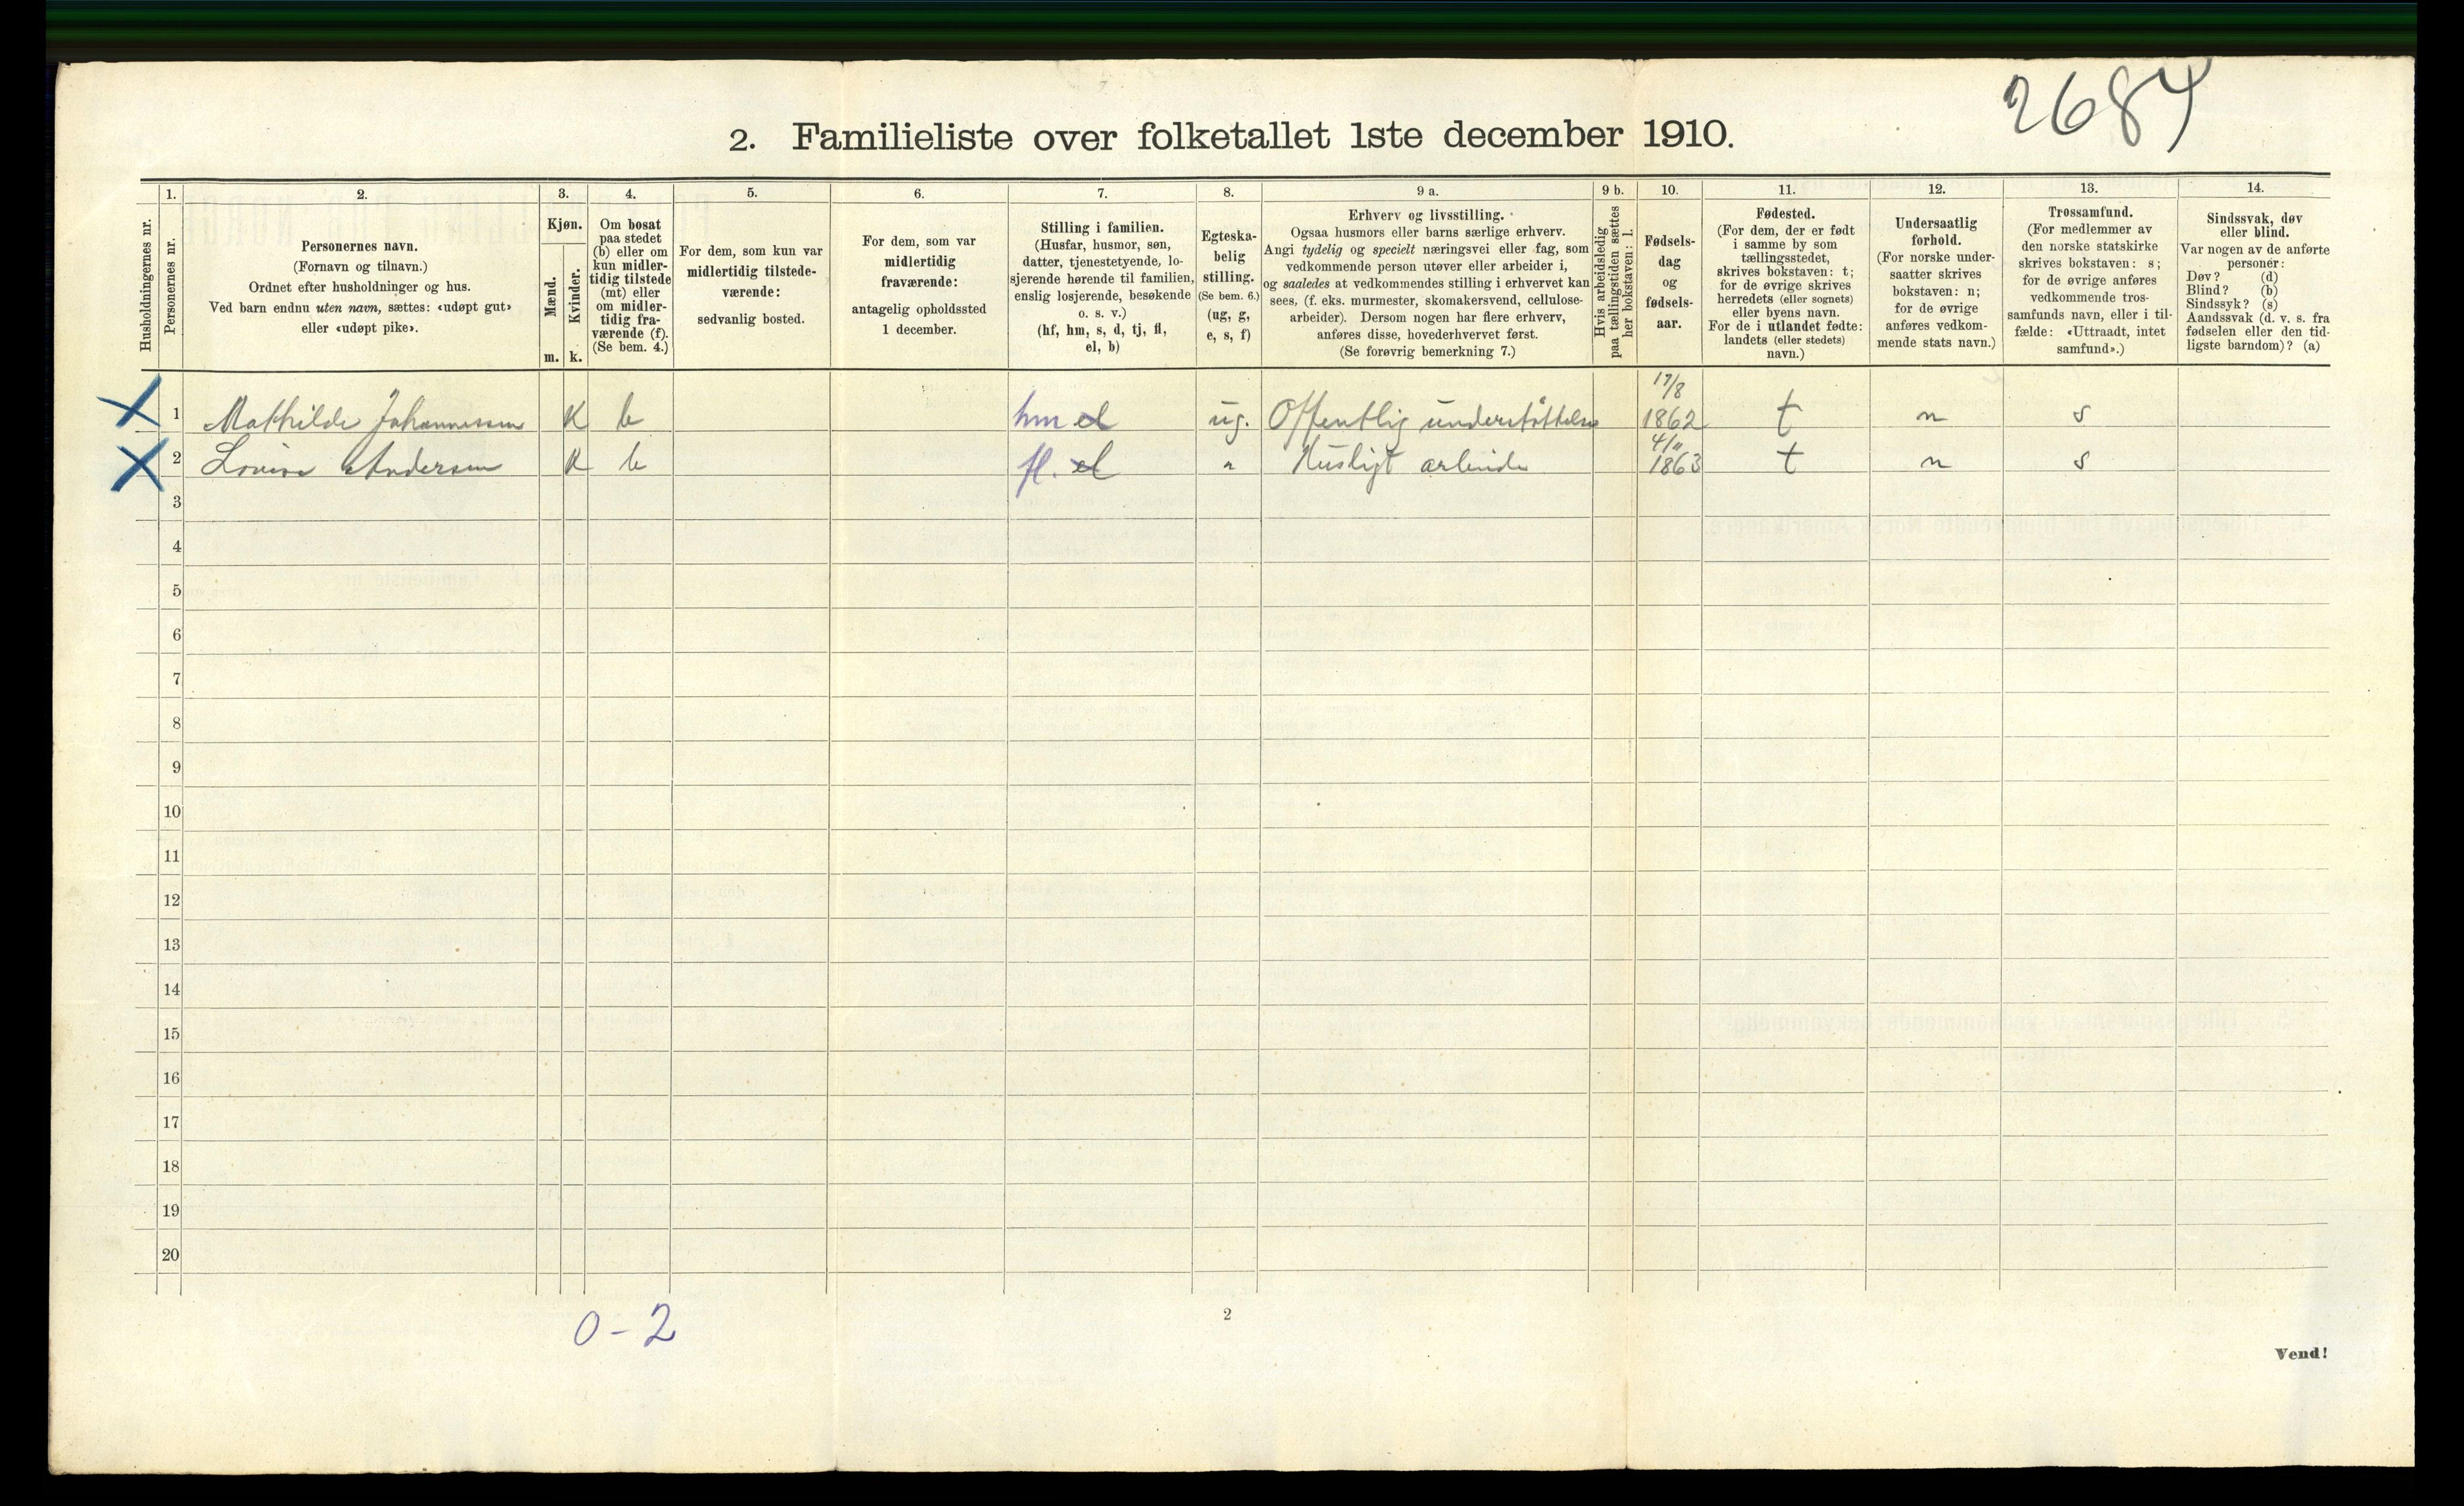 2684
2. Familieliste over folketallet 1ste december 1910.
Husholdningernes nr.
1.
Personernes nr.
2.
Personernes navn.
(Fornavn og tilnavn.)
Ordnet efter husholdninger og hus.
Ved barn endnu uten navn, sættes: «udøpt gut»
eller «udøpt pike».
3.
Kjøn.
Mænd.
Kvinder.
m. k.
4.
Om bosat
paa stedet
(b) eller om
kun midler-
tidig tilstede
(mt) eller
om midler-
tidig fra-
værende (f).
(Se bem. 4.)
5.
For dem, som kun var
midlertidig tilstede-
værende:
sedvanlig bosted.
6.
For dem, som var
midlertidig
fraværende:
antagelig opholdssted
1 december.
7.
Stilling i familien.
(Husfar, husmor, søn,
datter, tjenestetyende, lo-
sjerende hørende til familien,
enslig losjerende, besøkende
o. s. v.)
(hf, hm, s, d, tj, fl,
el, b)
8.
Egteska-
belig
stilling.
(Se bem. 6.)
(ug, g,
e, s, f)
9 a.
Erhverv og livsstilling.
Ogsaa husmors eller barns særlige erhverv.
Angi tydelig og specielt næringsvei eller fag, som
vedkommende person utøver eller arbeider i,
og saaledes at vedkommendes stilling i erhvervet kan
sees, (f. eks. murmester, skomakersvend, cellulose-
arbeider). Dersom nogen har flere erhverv,
anføres disse, hovederhvervet først.
(Se forøvrig bemerkning 7.)
9 b.
Hvis arbeidsledig
paa tællingstiden sættes
her bokstaven: l.
10.
Fødsels-
dag
og
fødsels-
aar.
11.
Fødested.
(For dem, der er født
i samme by som
tællingsstedet,
skrives bokstaven: t;
for de øvrige skrives
herredets (eller sognets)
eller byens navn.
For de i utlandet fødte:
landets (eller stedets)
navn.)
12.
Undersaatlig
forhold.
(For norske under-
saatter skrives
bokstaven: n;
for de øvrige
anføres vedkom-
mende stats navn.)
13.
Trossamfund.
(For medlemmer av
den norske statskirke
skrives bokstaven: s;
for de øvrige anføres
vedkommende tros-
samfunds navn, eller i til-
fælde: «Uttraadt, intet
samfund».)
14.
Sindssvak, døv
eller blind.
Var nogen av de anførte
personer:
Døv? (d)
Blind? (b)
Sindssyk? (s)
Aandssvak (d. v. s. fra
fødselen eller den tid-
ligste barndom)? (a)
1 Mathilde Johannessen K b hm el ug. Offentlig understøttelse 17/8 1862 t n s
2 Lovise Andersen K b fl. el " Husligt arbeide 4/11 1863 t n s
3
4
5
6
7
8
9
10
11
12
13
14
15
16
17
18
19
20
0 - 2
2
Vend!